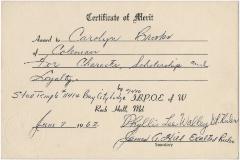 Certificate of Merit
Award to Carolyn Brooks
of Coleman
For Character, Scholarship and
Loyalty.
by
Star Temple #414 Bay City Lodge I.B.P.O.E. of W
Rock Hall, Md
June 7 1962 Phyllis Lee Walley Dt. Ruler
James A. Hill Exalted Ruler
Secretary